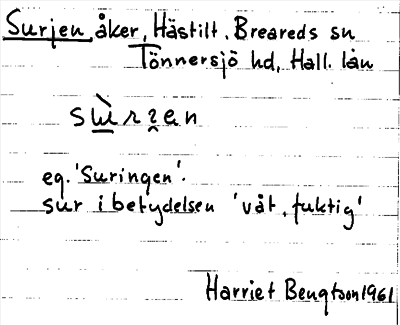 Surjen, åker, Hästilt, Breareds sn
Tönnersjö hd, Hall. län
eg. 'Suringen'.
sur i betydelsen 'våt, fuktig'
Harriet Bengtson 1961